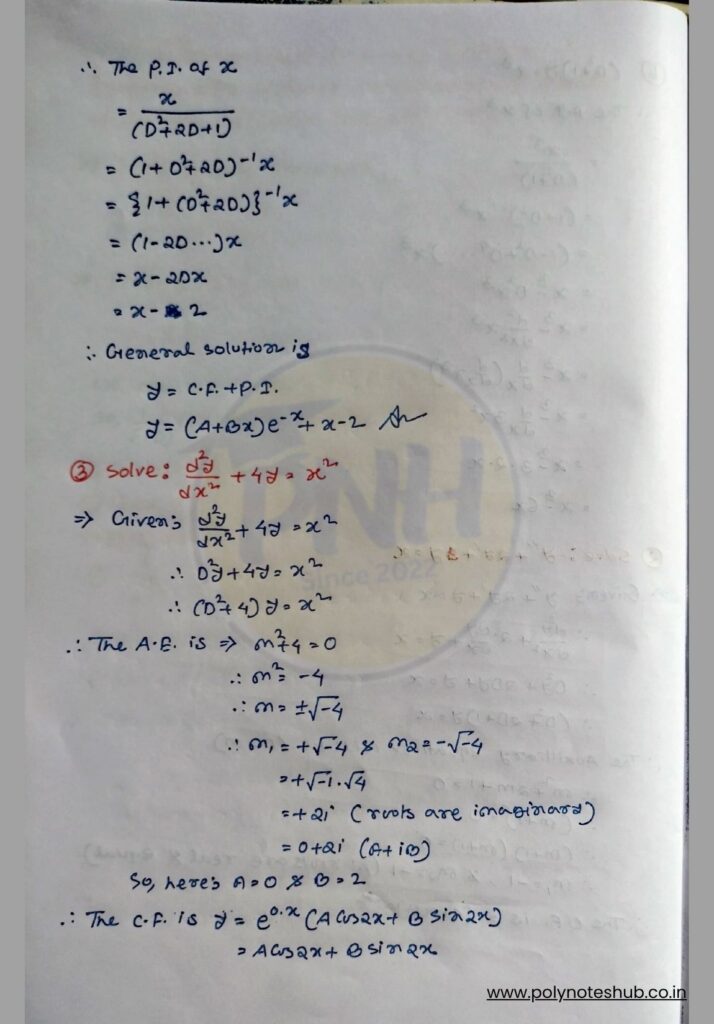 ∴ The P.I. of x
= x / (D²+2D+1)
= (1+D²+2D)⁻¹x
= {1+(D²+2D)}⁻¹x
= (1-2D...)x
= x-2Dx
= x- 2
∴ General solution is
y = C.F.+P.I.
y = (A+Bx)e⁻ˣ+x-2 Ans
③ Solve: d²y/dx² + 4y = x²
⇒ Given: d²y/dx² + 4y = x²
∴ D²y+4y = x²
Since 2022
∴ (D²+4)y = x²
∴ The A.E. is ⇒ m²+4=0
∴ m² = -4
∴ m = ±√-4
∴ m₁ = +√-4 & m₂ = -√-4
= +√-1.√4
= +2i (roots are imaginary)
= 0+2i (A+iB)
So, here's A=0 & B=2
∴ The C.F. is y = e⁰·ˣ (A cos2x + B sin2x)
= A cos2x + B sin2x
PNH
www.polynoteshub.co.in